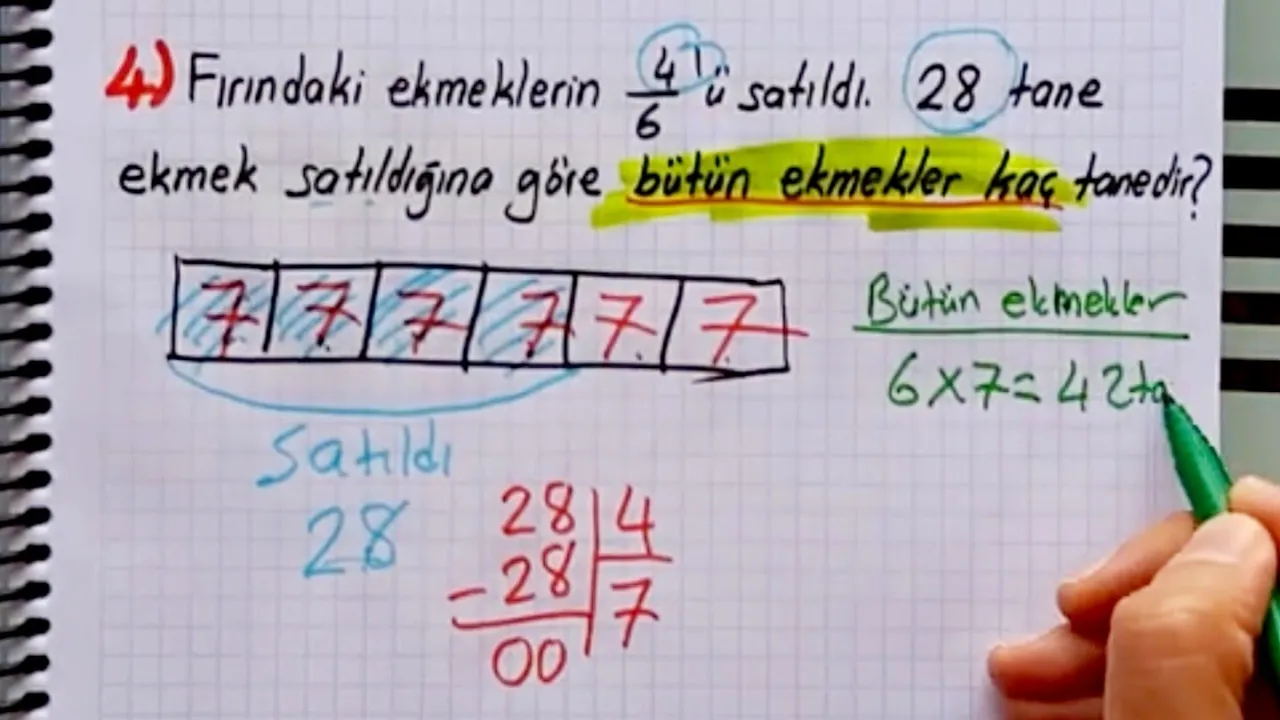 4.) Fırındaki ekmeklerin 4/6'ü satıldı. 28 tane
ekmek satıldığına göre bütün ekmekler kaç tanedir?
7 7 7 7 7 7
Satıldı
28
28 | 4
- 28 | 7
00
Bütün ekmekler
6x7=42ta